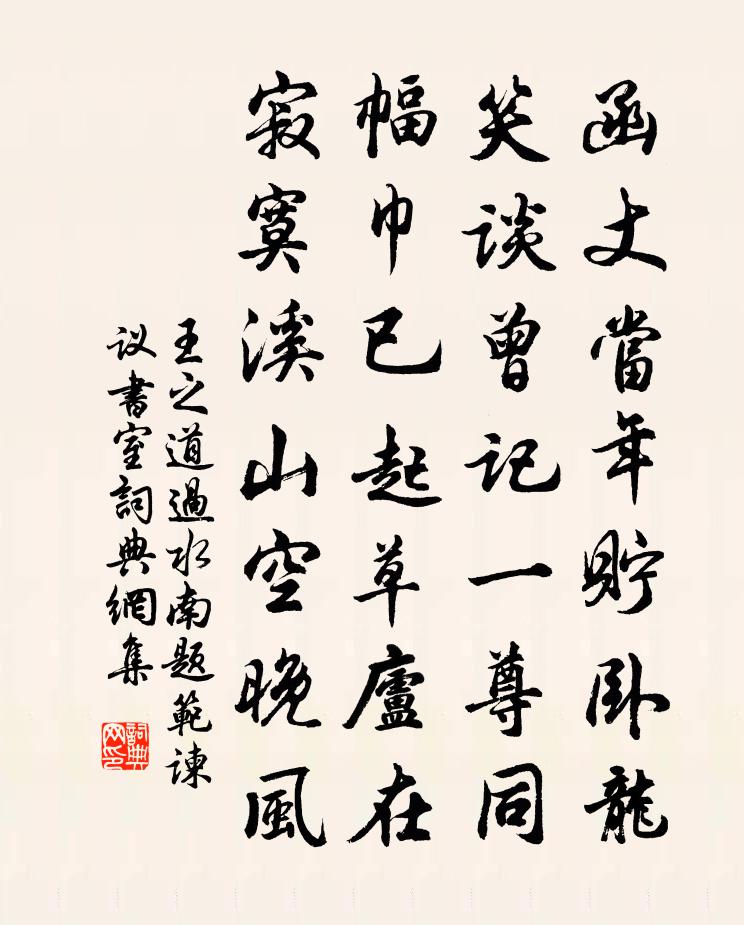 函丈當年貯卧龍
笑談曾記一尊同
幅巾已起草廬在
寂寞溪山空晚風
王之道過水南题範諫
议書室詞典網集
詞典网印